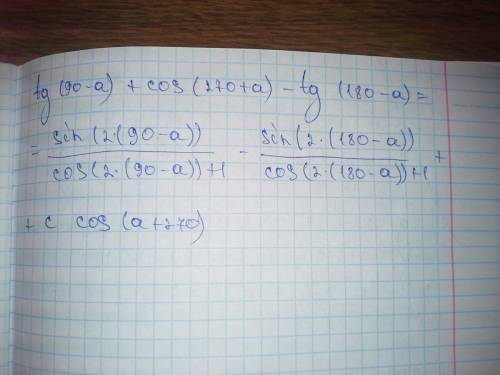 tg (90-a) + cos (270+a) - tg (180-a) =
= sin(2·(90-a)) / cos(2·(90-a))+1 - sin(2·(180-a)) / cos(2·(180-a))+1 +
+ c cos (a+270)